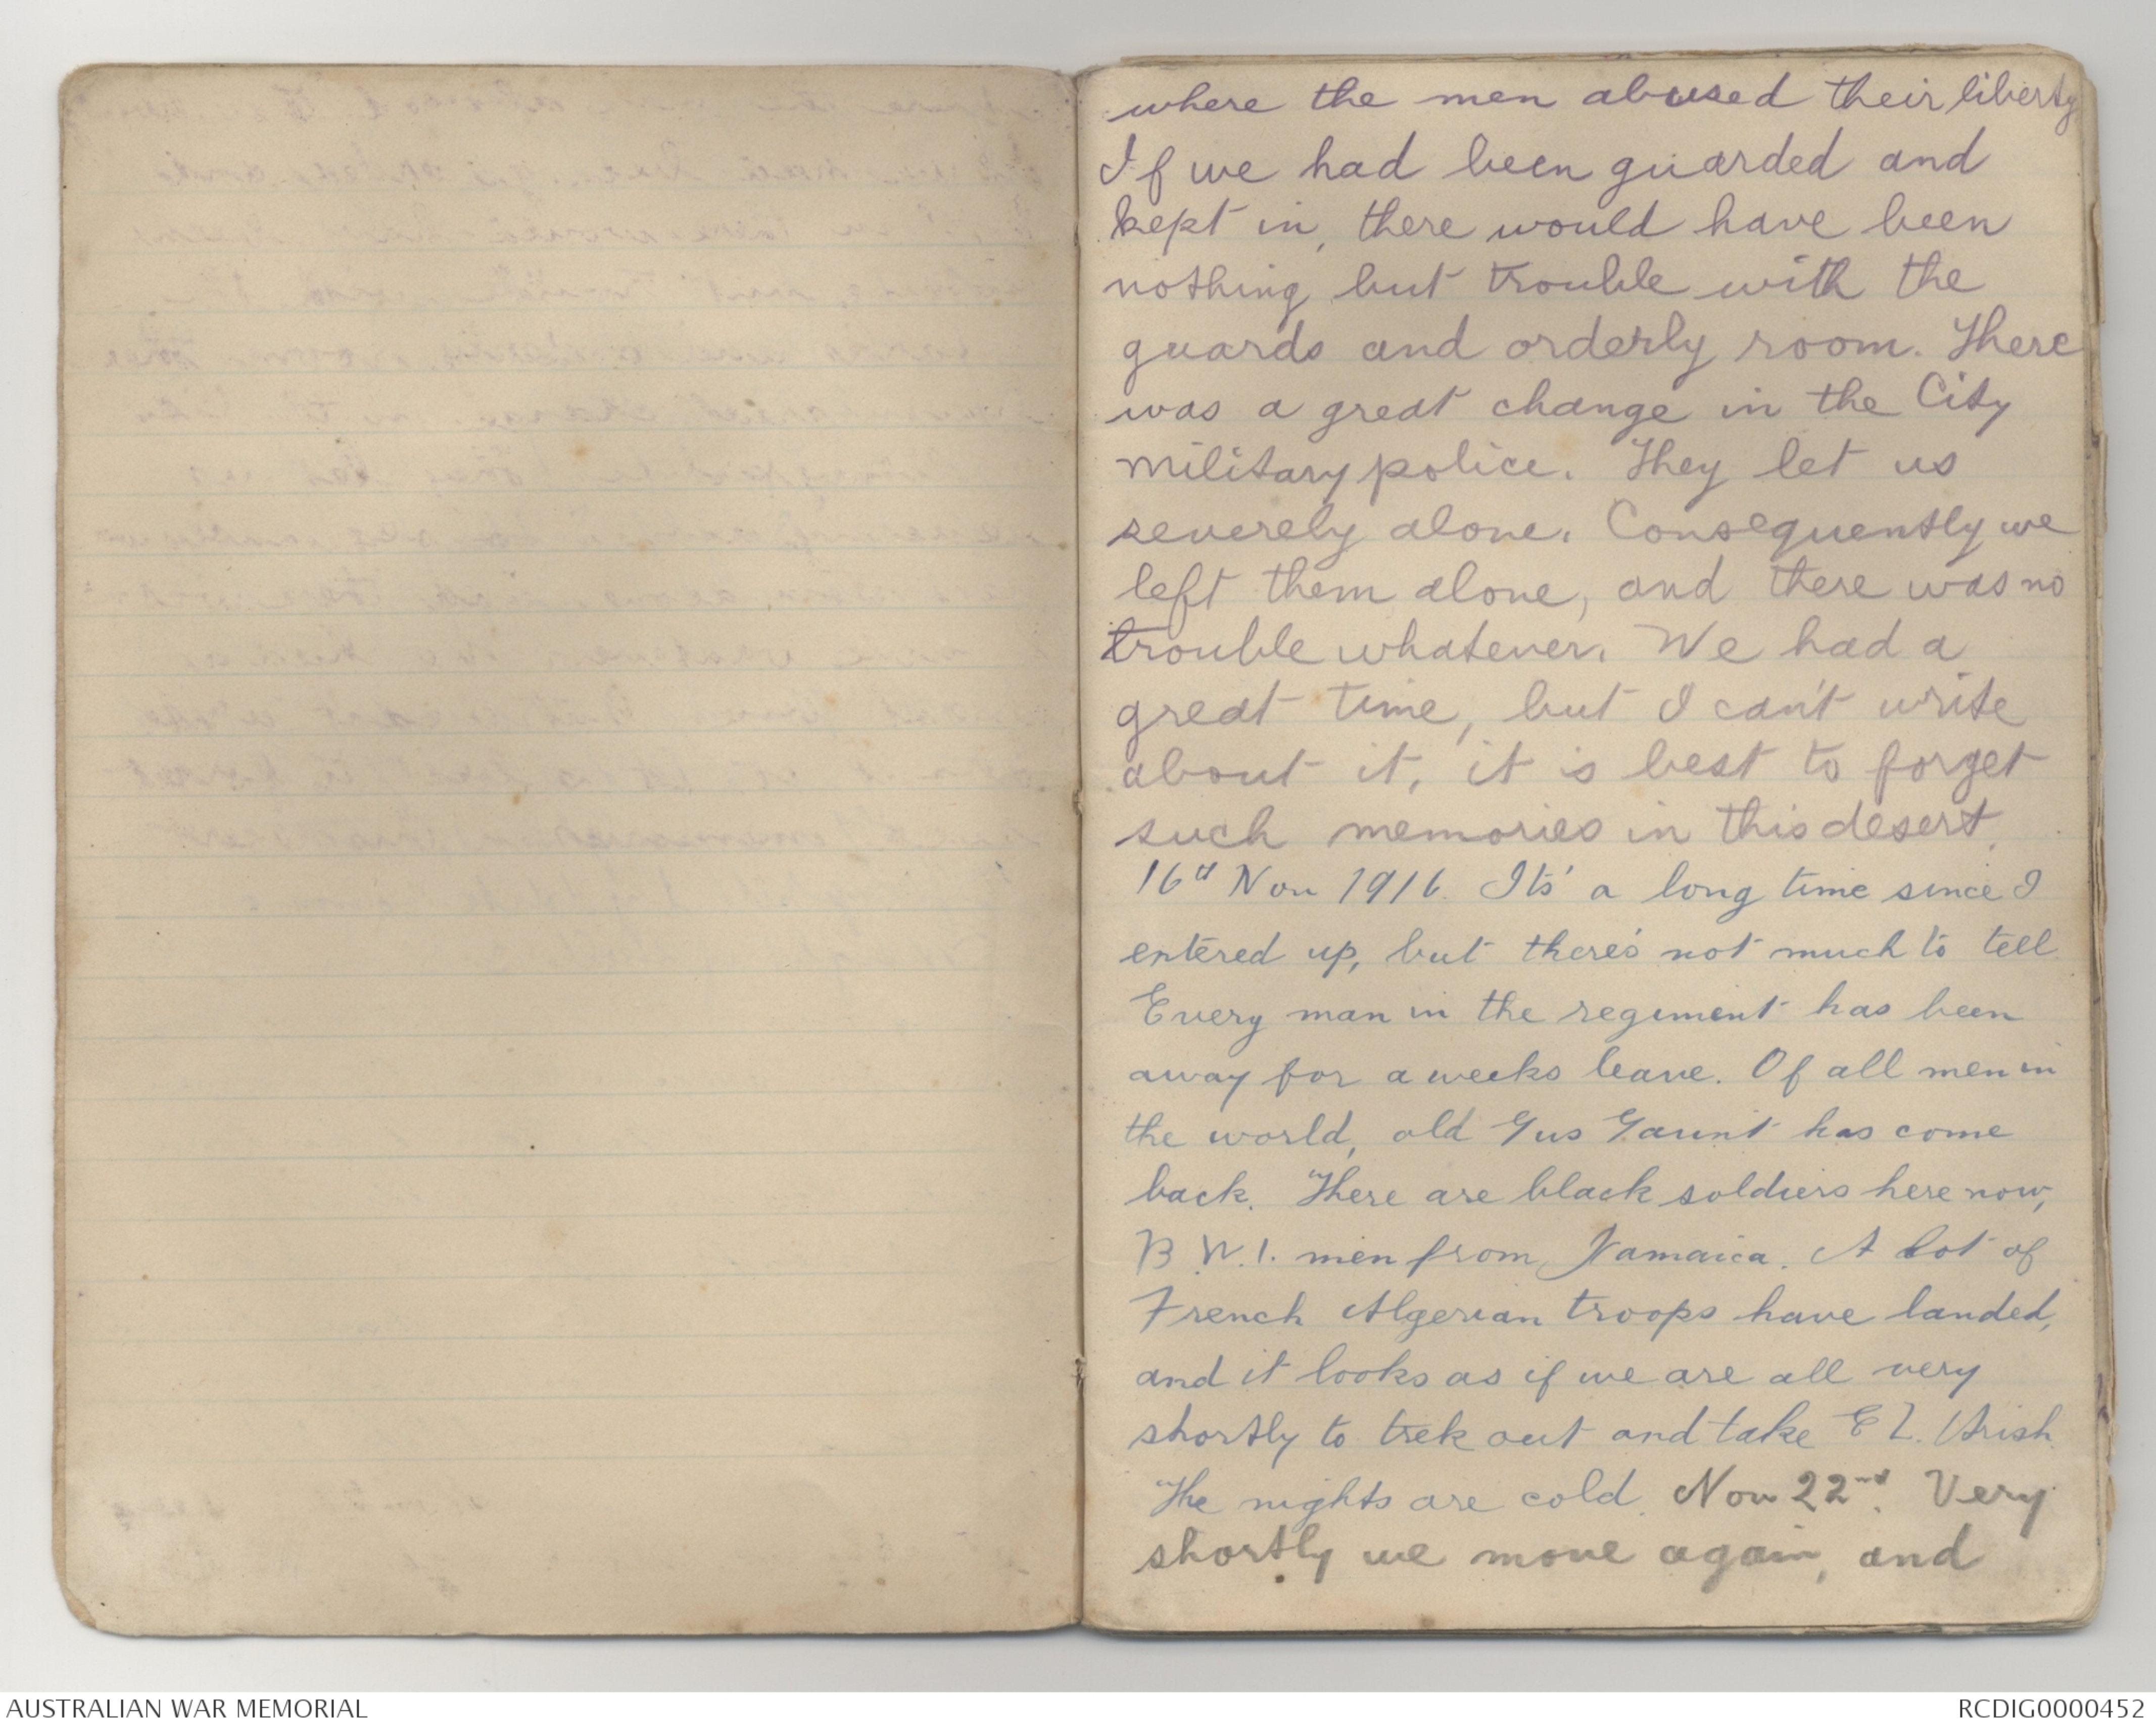 where the men abused their liberty
If we had been guarded and
kept in, there would have been
nothing but trouble with the
guards and orderly room. There
was a great change in the City
military police. They let us
severely alone. Consequently we
left them alone, and there was no
trouble whatever. We had a
great time, but I can't write
about it, it is best to forget
such memories in this desert.
16th Nov 1916. Its' a long time since I
entered up, but there's not much to tell
Every man in the regiment has been
away for a weeks leave. Of all men in
the world, old Gus Gaunt has come
back. There are black soldiers here now,
B.W.I. men from Jamaica. A lot of
French Algerian troops have landed,
and it looks as if we are all very
shortly to trek out and take EL. Arish
The nights are cold. Nov 22nd. Very
shortly we move again, and
AUSTRALIAN WAR MEMORIAL
RCDIG0000452